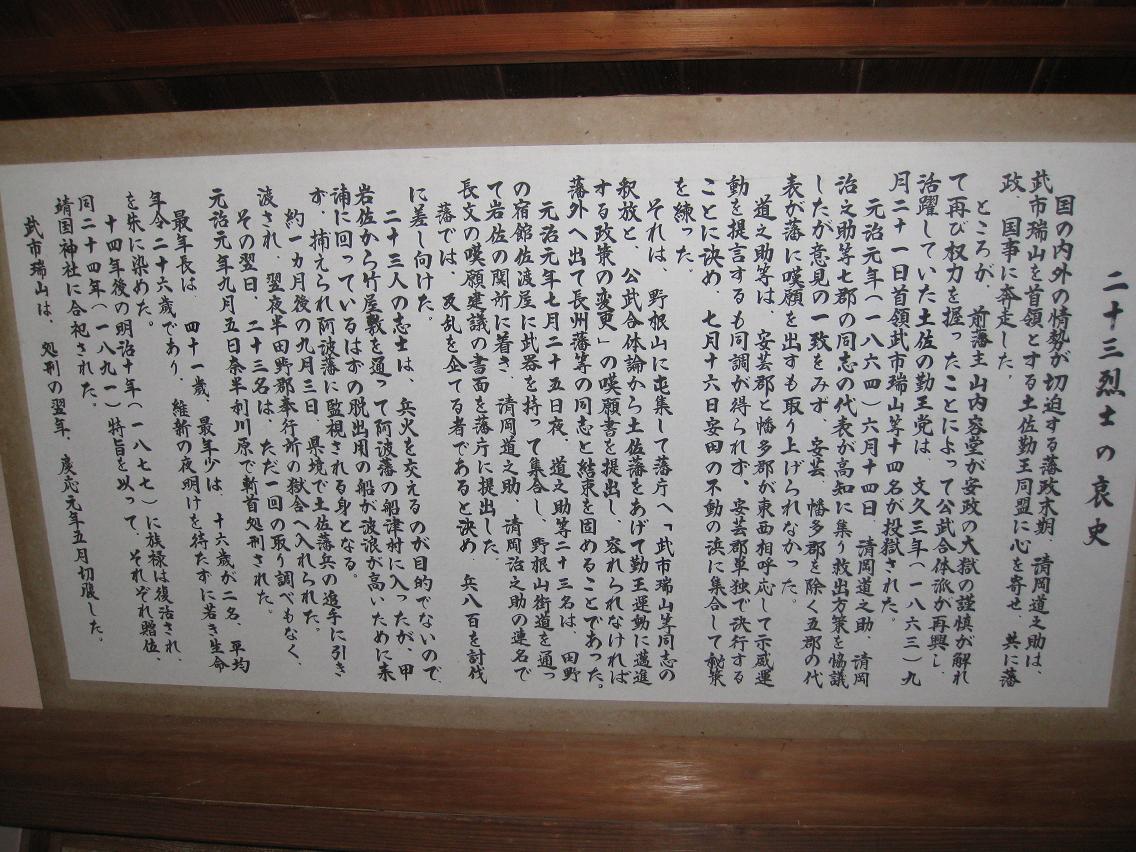 二十三烈士の哀史
国の内外の情勢が切迫する藩政末期、清岡道之助は、
武市瑞山を首領とする土佐勤王同盟に心を寄せ、共に藩
政、国事に奔走した。
ところが、前藩主山内容堂が安政の大獄の謹慎が解れ
て再び権力を握ったことによって公武合体派が再興し、
活躍していた土佐の勤王党は、文久三年(一八六三)九
月二十一日首領武市瑞山等十四名が投獄された。
元治元年(一八六四)六月十四日、清岡道之助、清岡
治之助等七郡の同志の代表が高知に集り救出方策を協議
したが意見の一致をみず、安芸、幡多郡を除く五郡の代
表が藩に嘆願を出すも取り上げられなかった。
道之助等は、安芸郡と幡多郡が東西相呼応して示威運
動を提言するも同調が得られず、安芸郡単独で決行する
ことに決め、七月十六日安田の不動の浜に集合して秘策
を練った。
それは、野根山に屯集して藩庁へ「武市瑞山等同志の
釈放と、公武合体論から土佐藩をあげて勤王運動に邁進
する政策の変更」の嘆願書を提出し、容れられなければ
藩外へ出て長州藩等の同志と結束を固めることであった。
元治元年七月二十五日夜、道之助等二十三名は、田野
の宿館佐渡屋に武器を持って集合し、野根山街道を通っ
て岩佐の関所に着き、清岡道之助、清岡治之助の連名で
長文の嘆願建議の書面を藩庁に提出した。
藩では、反乱を企てる者であると決め、兵八百を討伐
に差し向けた。
二十三人の志士は、兵火を交えるのが目的でないので、
岩佐から竹屋敷を通って阿波藩の船津村に入ったが、甲
浦に回っているはずの脱出用の船が波浪が高いために来
ず、捕えられ阿波藩に監視される身となる。
約一ヵ月後の九月三日、県境で土佐藩兵の追手に引き
渡され、翌夜半田野郡奉行所の獄舎へ入れられた。
その翌日、二十三名は、ただ一回の取り調べもなく、
元治元年九月五日奈半利川原で斬首処刑された。
最年長は、四十一歳、最年少は、十六歳が二名、平均
年令二十六歳であり、維新の夜明けを待たずに若き生命
を朱に染めた。
十四年後の明治十年(一八七七)に族禄は復活され、
同二十四年(一八九一)特旨を以って、それぞれ贈位、
靖国神社に合祀された。
武市瑞山は、処刑の翌年、慶応元年五月切腹した。